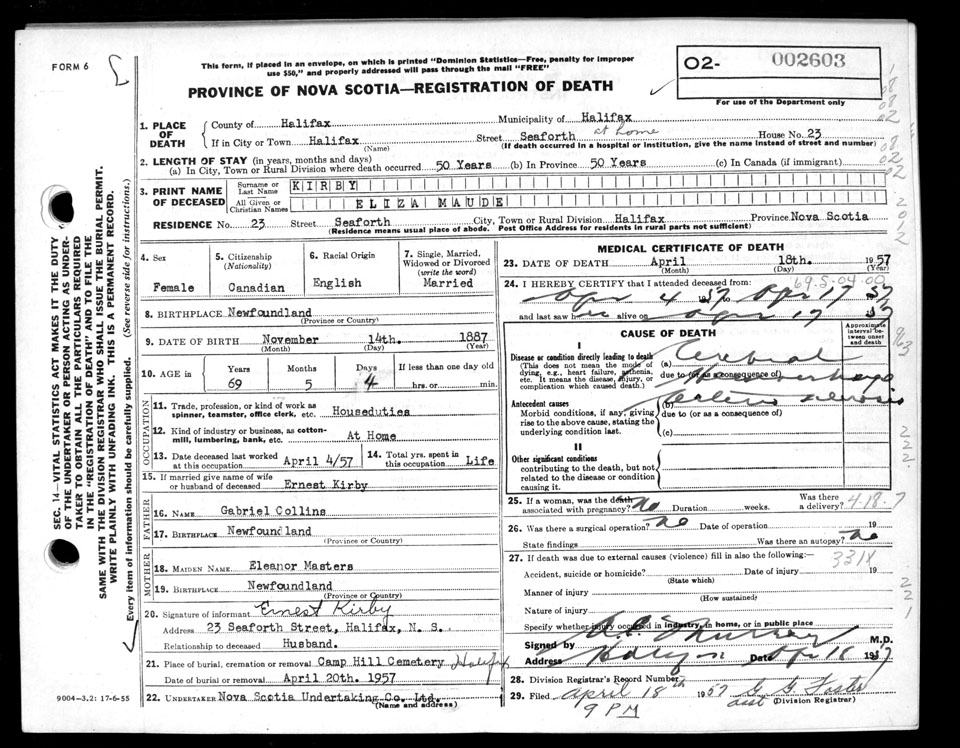 FORM 6
This form, if placed in an envelope, on which is printed "Dominion Statistics—Free, penalty for improper
use $50," and properly addressed will pass through the mail "FREE"
PROVINCE OF NOVA SCOTIA—REGISTRATION OF DEATH
O2- 002603
For use of the Department only
1. PLACE OF DEATH
County of Halifax Municipality of Halifax
If in City or Town Halifax Street Seaforth at home House No. 23
(Name) (If death occurred in a hospital or institution, give the name instead of street and number)
2. LENGTH OF STAY (in years, months and days)
(a) In City, Town or Rural Division where death occurred 50 Years (b) In Province 50 Years (c) In Canada (if immigrant)
3. PRINT NAME OF DECEASED
Surname or Last Name KIRBY
All Given or Christian Names ELIZA MAUDE
RESIDENCE No. 23 Street Seaforth City, Town or Rural Division Halifax Province Nova Scotia
(Residence means usual place of abode. Post Office Address for residents in rural parts not sufficient)
4. Sex
Female
5. Citizenship
(Nationality)
Canadian
6. Racial Origin
English
7. Single, Married,
Widowed or Divorced
(write the word)
Married
8. BIRTHPLACE Newfoundland
(Province or Country)
9. DATE OF BIRTH November 14th. 1887
(Month) (Day) (Year)
10. AGE in
Years Months Days If less than one day old
69 5 4 hrs. or min.
OCCUPATION
11. Trade, profession, or kind of work as
spinner, teamster, office clerk, etc. Houseduties
12. Kind of industry or business, as cotton-
mill, lumbering, bank, etc. At Home
13. Date deceased last worked
at this occupation April 4/57
14. Total yrs. spent in
this occupation Life
15. If married give name of wife
or husband of deceased Ernest Kirby
FATHER
16. NAME Gabriel Collins
17. BIRTHPLACE Newfoundland
(Province or Country)
MOTHER
18. MAIDEN NAME Eleanor Masters
19. BIRTHPLACE Newfoundland
(Province or Country)
20. Signature of informant Ernest Kirby
Address 23 Seaforth Street, Halifax, N. S.
Relationship to deceased Husband.
21. Place of burial, cremation or removal Camp Hill Cemetery Halifax
Date of burial or removal April 20th. 1957
22. UNDERTAKER Nova Scotia Undertaking Co. Ltd.
(Name and address)
9004-3.2: 17-6-55
SEC. 14—VITAL STATISTICS ACT MAKES IT THE DUTY
OF THE UNDERTAKER OR PERSON ACTING AS UNDER-
TAKER TO OBTAIN ALL THE PARTICULARS REQUIRED
IN THE "REGISTRATION OF DEATH" AND TO FILE THE
SAME WITH THE DIVISION REGISTRAR WHO SHALL ISSUE THE BURIAL PERMIT.
WRITE PLAINLY WITH UNFADING INK. THIS IS A PERMANENT RECORD.
Every item of information should be carefully supplied. (See reverse side for instructions.)
MEDICAL CERTIFICATE OF DEATH
23. DATE OF DEATH April 18th. 1957
(Month) (Day) (Year)
24. I HEREBY CERTIFY that I attended deceased from: 69-5-04-00
Apr 4 1957 to Apr 17 57
and last saw her alive on Apr 17 57
CAUSE OF DEATH
Approximate
interval be-
tween onset
and death
I
Disease or condition directly leading to death
(This does not mean the mode of
dying, e.g., heart failure, asthenia,
etc. It means the disease, injury, or
complication which caused death.)
(a) Cerebral
due to (or as a consequence of)
Haemorrhage
Antecedent causes
Morbid conditions, if any, giving
rise to the above cause, stating the
underlying condition last.
(b)
due to (or as a consequence of)
(c)
II
Other significant conditions
contributing to the death, but not
related to the disease or condition
causing it.
25. If a woman, was the death
associated with pregnancy? No Duration weeks. Was there
a delivery? 4-18-7
26. Was there a surgical operation? No Date of operation 19
State findings Was there an autopsy? No
27. If death was due to external causes (violence) fill in also the following:—
331X
Accident, suicide or homicide? Date of injury 19
(State which)
Manner of injury
(How sustained)
Nature of injury
Specify whether injury occurred in industry, in home, or in public place
Signed by M.D.
Address Date Apr 18 1957
28. Division Registrar's Record Number
29. Filed April 18th 1957
9 PM
(Division Registrar)